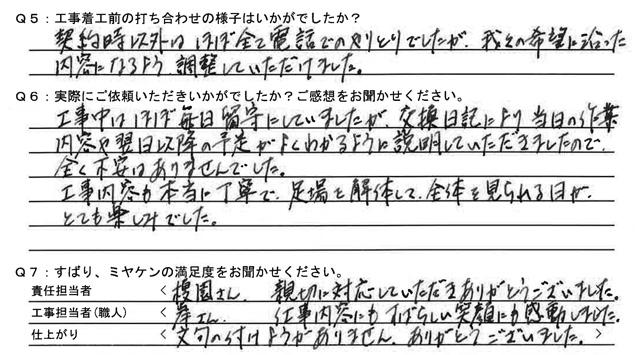 Q5：工事着工前の打ち合わせの様子はいかがでしたか？
契約時以外は ほぼ全て電話でのやりとりでしたが、我々の希望に沿った
内容になるよう 調整していただけました。
Q6：実際にご依頼いただきいかがでしたか？ご感想をお聞かせください。
工事中はほぼ毎日留守にしていましたが、交換日記により 当日の作業
内容や翌日以降の予定がよくわかるように説明していただきましたので、
全く不安はありませんでした。
工事内容も本当に丁寧で、足場を解体して、全体を見られる日が、
とても楽しみでした。
Q7：ずばり、ミヤケンの満足度をお聞かせください。
責任担当者 < 園さん、親切に対応していただきありがとうございました。
工事担当者（職人） < さん 仕事内容にもすばらしい笑顔にも感動しました。
仕上がり < 文句の付けようがありません。ありがとうございました。 >